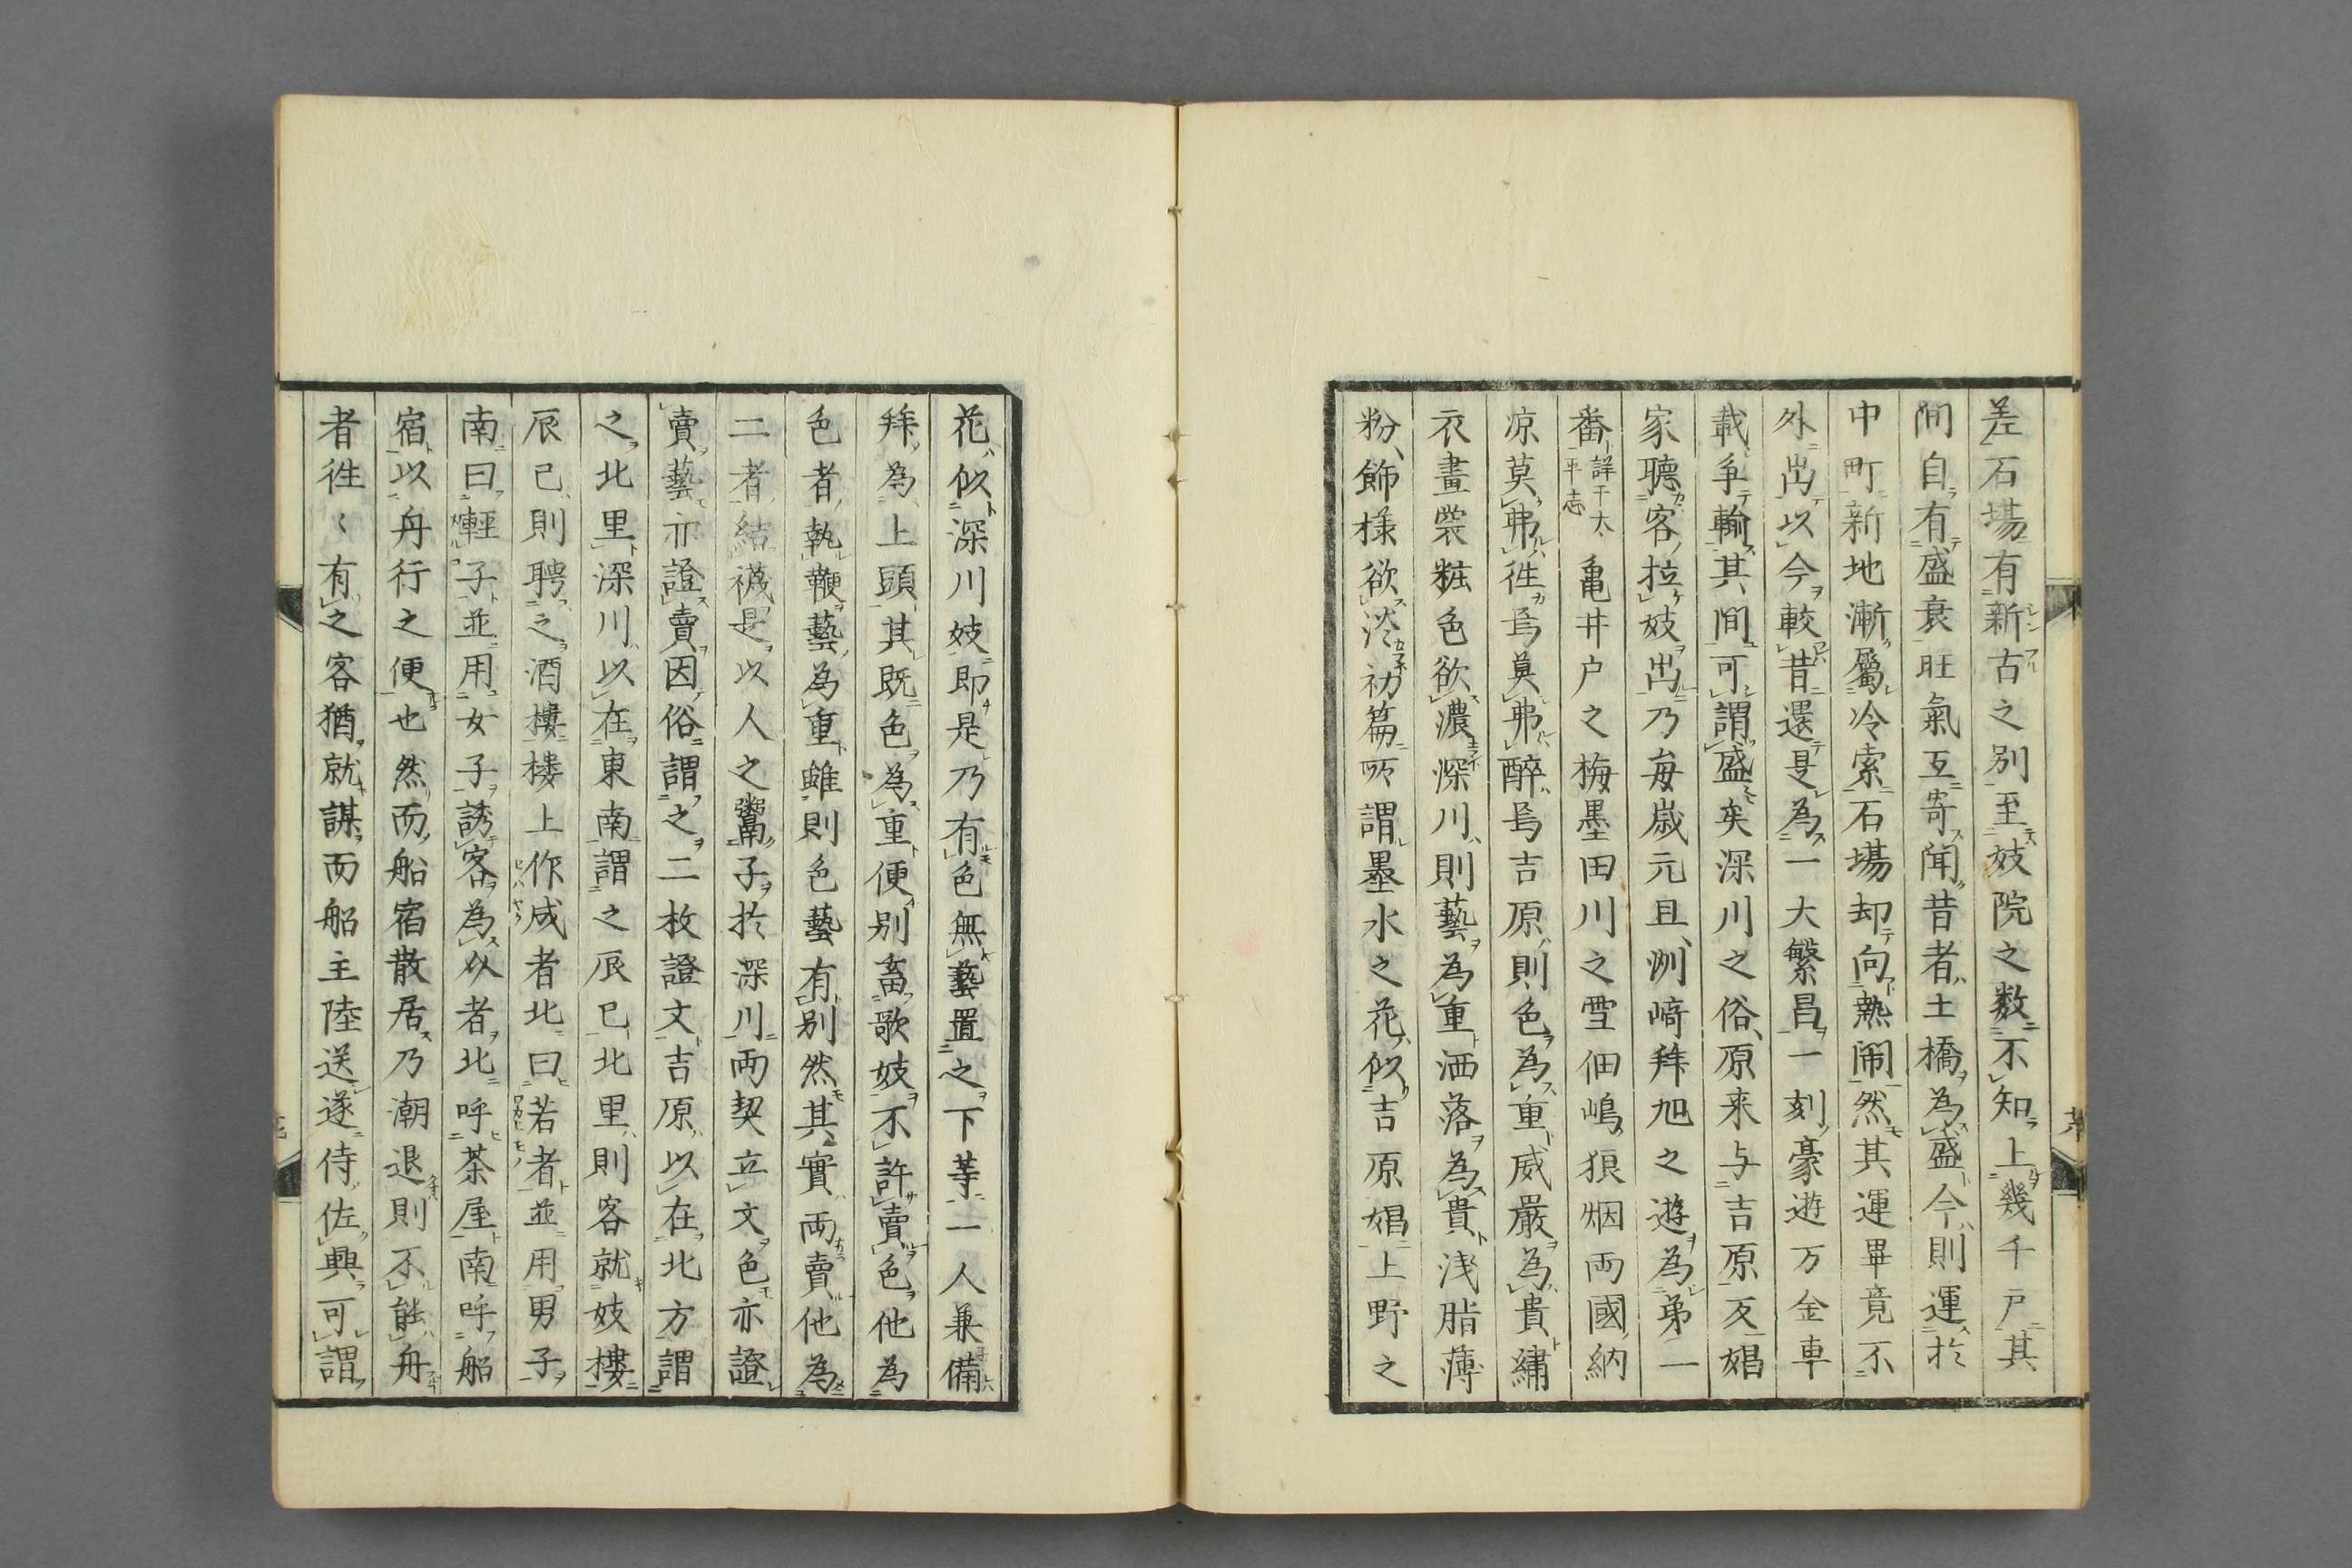 差石場有新古之別至妓院之数不知上幾千戸其
間自有盛衰旺氣互寄聞昔者土橋為盛今則運於
中町新地漸屬冷索石場却向熱閙然其運畢竟不
外出以今較昔還是為一大繁昌一刻豪遊万金車
載争輸其間可謂盛矣深川之俗原来与吉原反娼
家聴客拉妓出乃毎歳元旦洲﨑拜旭之遊為弟一
番詳于太平志亀井戸之梅墨田川之雪佃嶋狼烟両國納
凉莫弗徃焉莫弗醉焉吉原則色為重威嚴為貴繡
衣畫裳粧色欲濃深川則藝為重洒落為貴浅脂薄
粉飾様欲淡初篇所謂墨水之花似吉原娼上野之
花似深川妓即是乃有色無藝置之下等一人兼備
拜為上頭其既色為重便別畜歌妓不許賣色他為
色者執鞭藝為重雖則色藝有別然其實両賣他為
二者結襪是以人之鬻子於深川両契立文色亦證
賣藝亦證賣因俗謂之二枚證文吉原以在北方謂
之北里深川以在東南謂之辰巳北里則客就妓樓
辰巳則聘之酒樓楼上作成者北曰若者並用男子
南曰輕子並用女子誘客為以者北呼茶屋南呼船
宿以舟行之便也然而船宿散居乃潮退則不能舟
者徃〻有之客猶就謀而船主陸送遂侍佐興可謂